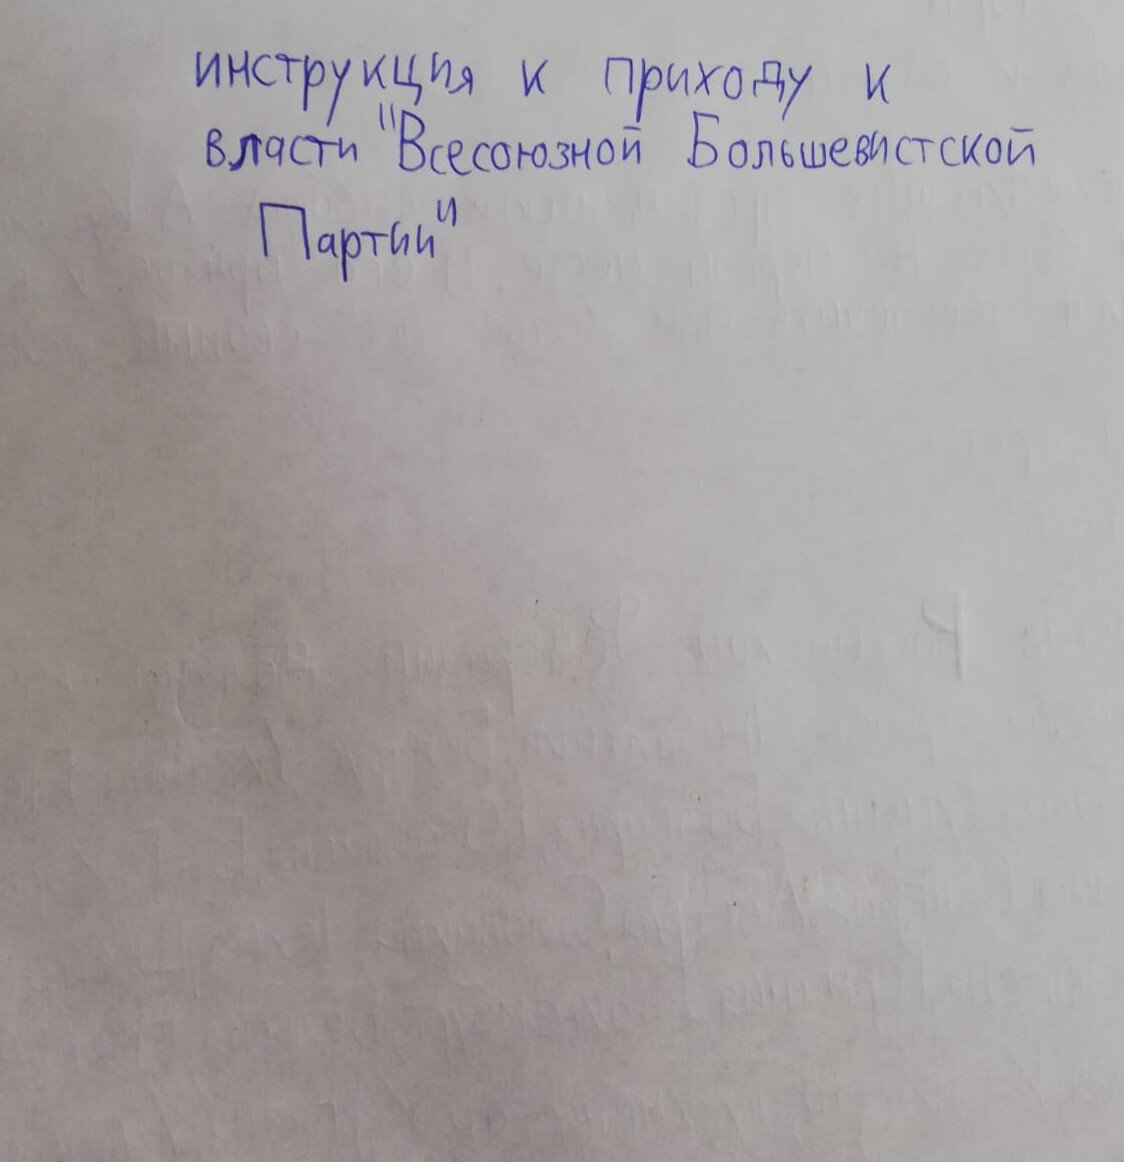 инструкция к приходу к
власти "Всесоюзной Большевистской
Партии"